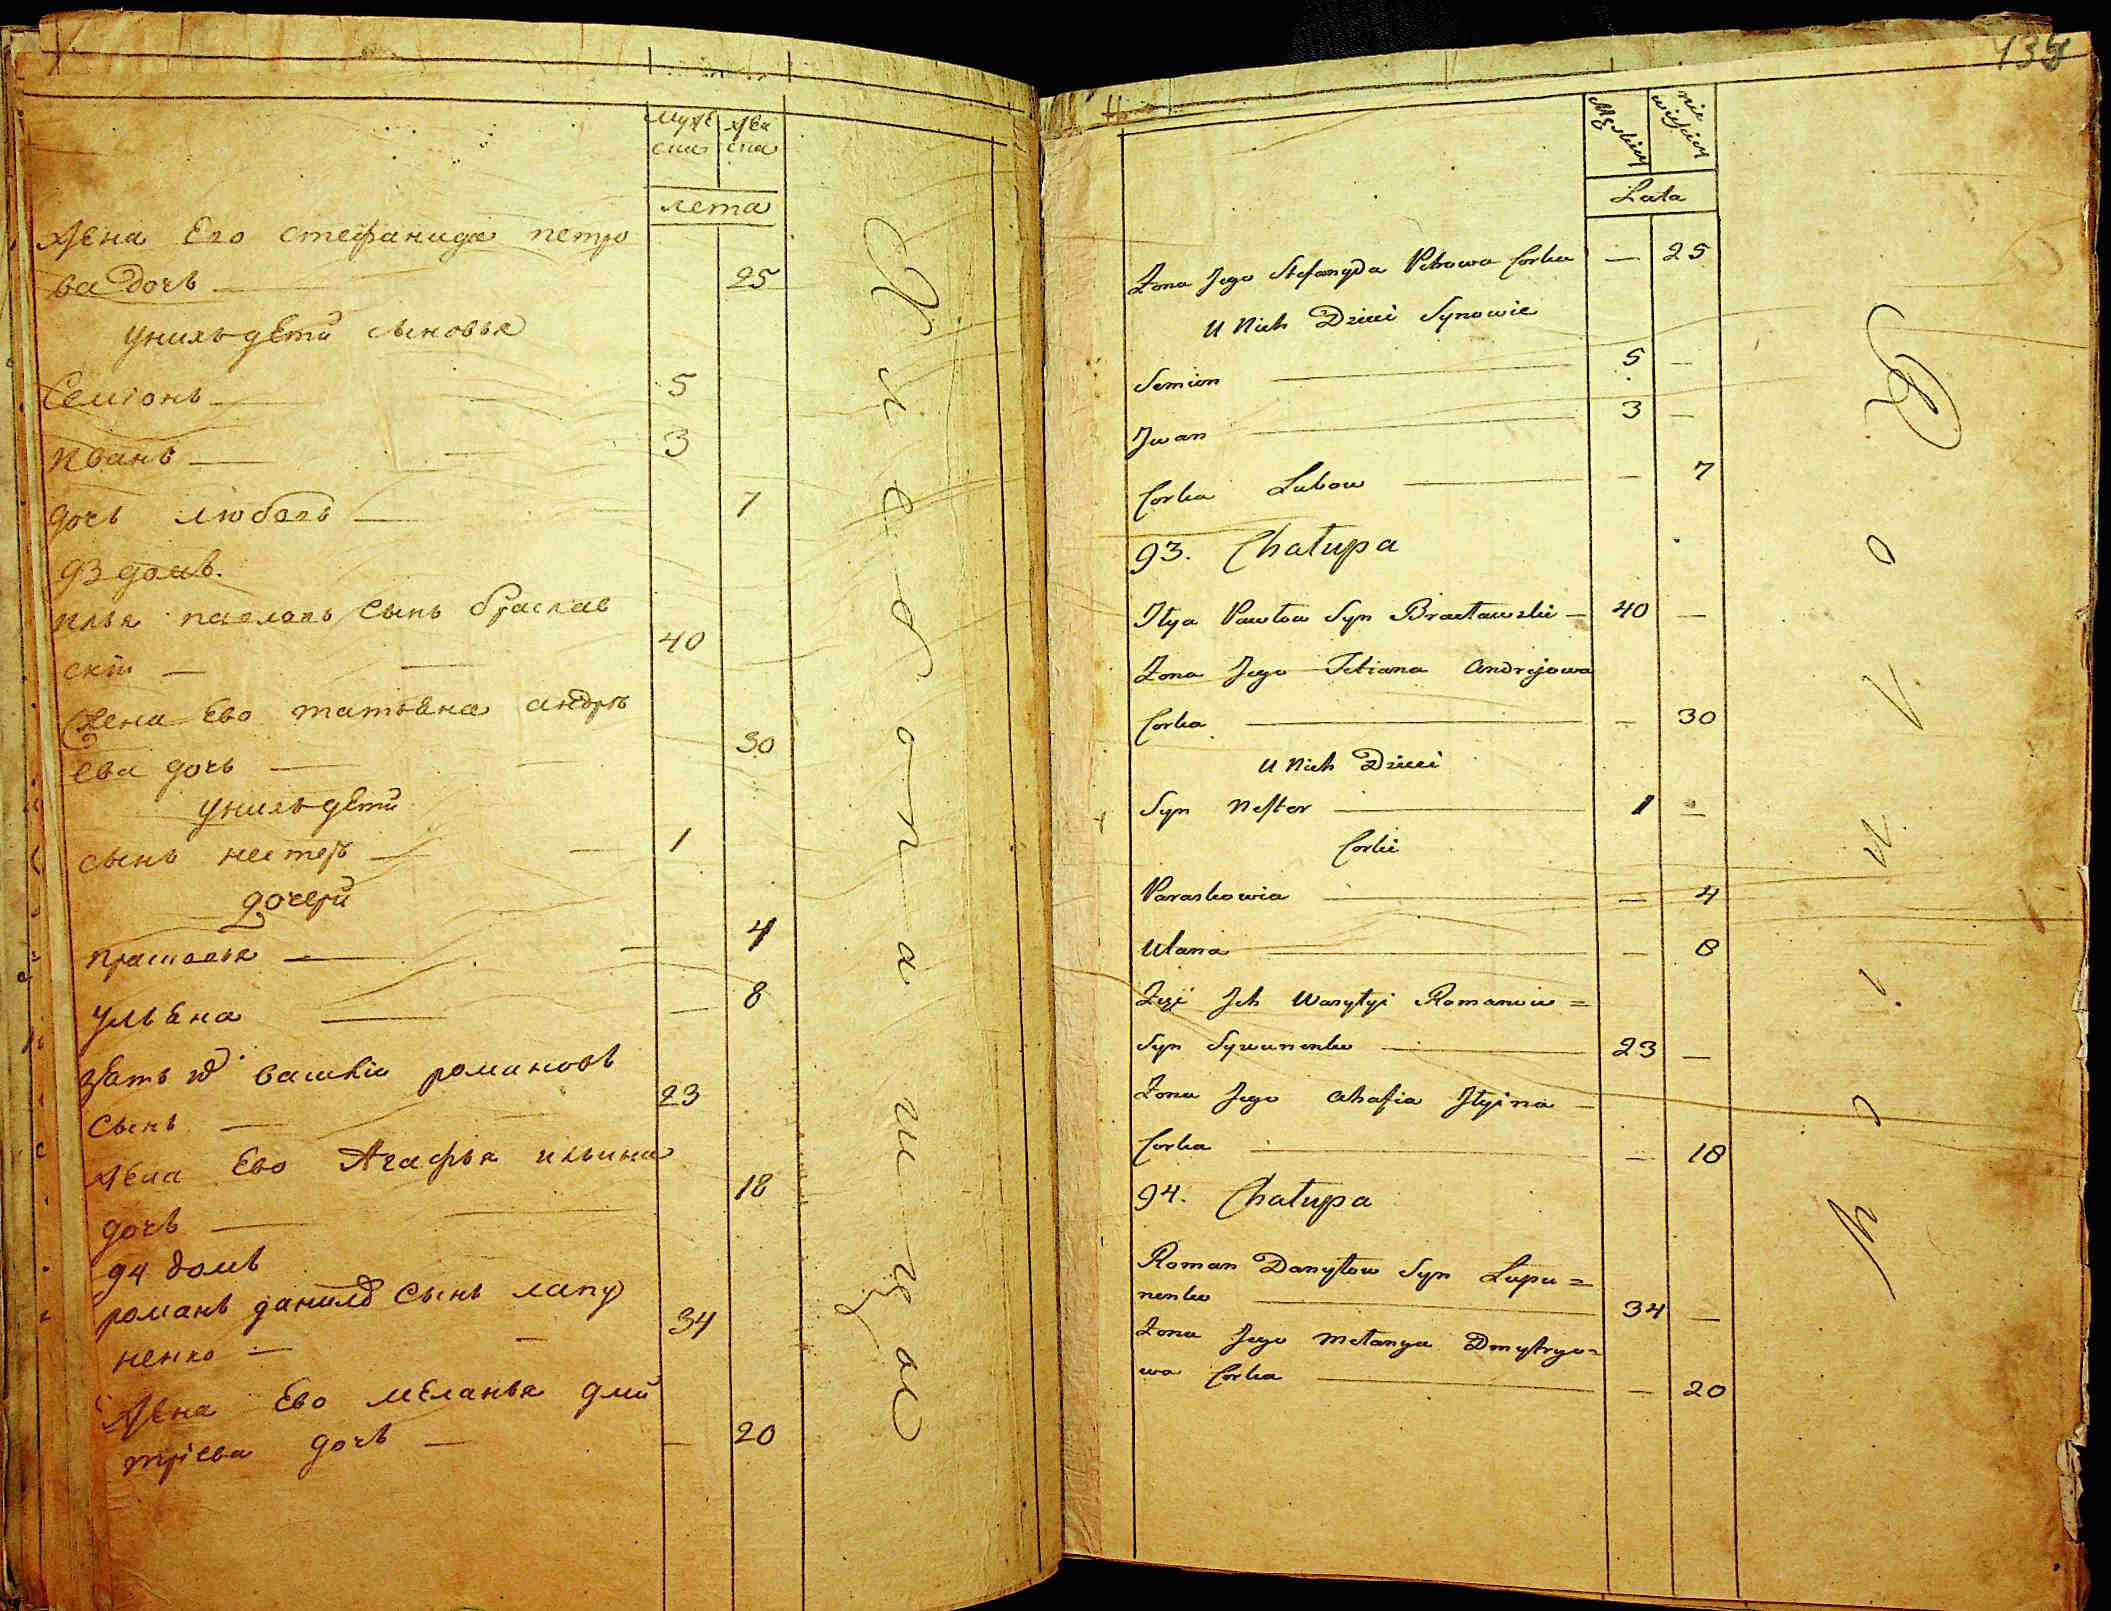 муже жен
ска ска
лета
жена Ево стефанида петро
ва дочь 25
унихъ дети сыновья
Семионъ 5
иванъ 3
дочь любовь 7
93 домъ.
илья павловъ сынъ браслав
скій 40
жена Ево татьяна андрѣ
ева дочь 30
унихъ дети
сынъ нестеръ 1
дочери
прасковья 4
ульяна — 8
зять романовъ
сынъ 23
жена Ево Агафья ильина
дочь 18
94 домъ
романъ данилов сынъ лапу
ненко 34
жена Ево меланья дми
тріева дочь — 20
Męskiey niewieśćiey
Lata
Żona Jego Stefanyda Petrowa Corka — 25
U Nich Dzieci Synowie
Semion 5 —
Jwan 3 —
Corka Lubow — 7
93. Chałupa
Jłya Pawłow Syn Bracławski — 40 —
Żona Jego Tetiana Andrejowa
Corka — 30
U Nich Dzieci
Syn Nestor 1 —
Corki
Paraskowia — 4
Ulana — 8
Zięć Jch Wasylyi Romanow =
Syn 23 —
Żona Jego Ahafia Jłyina —
Corka — 18
94. Chałupa
Roman Danyłow Syn Łapu =
nenko 34 —
Żona Jego Mełanya Dmytryo =
wa Corka — 20